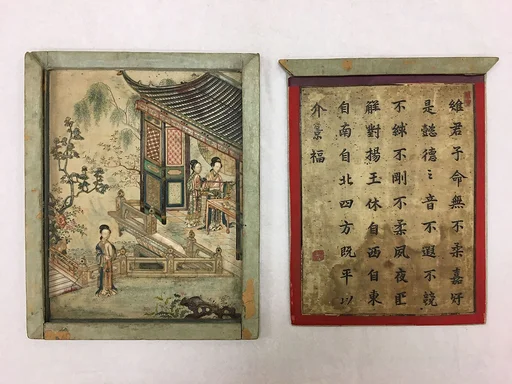 維君子命無不柔嘉好
是懿德〻音不遐不競
不絿不剛不柔夙夜匪
解對揚玉休自西自東
自南自北四方既平以
介景福